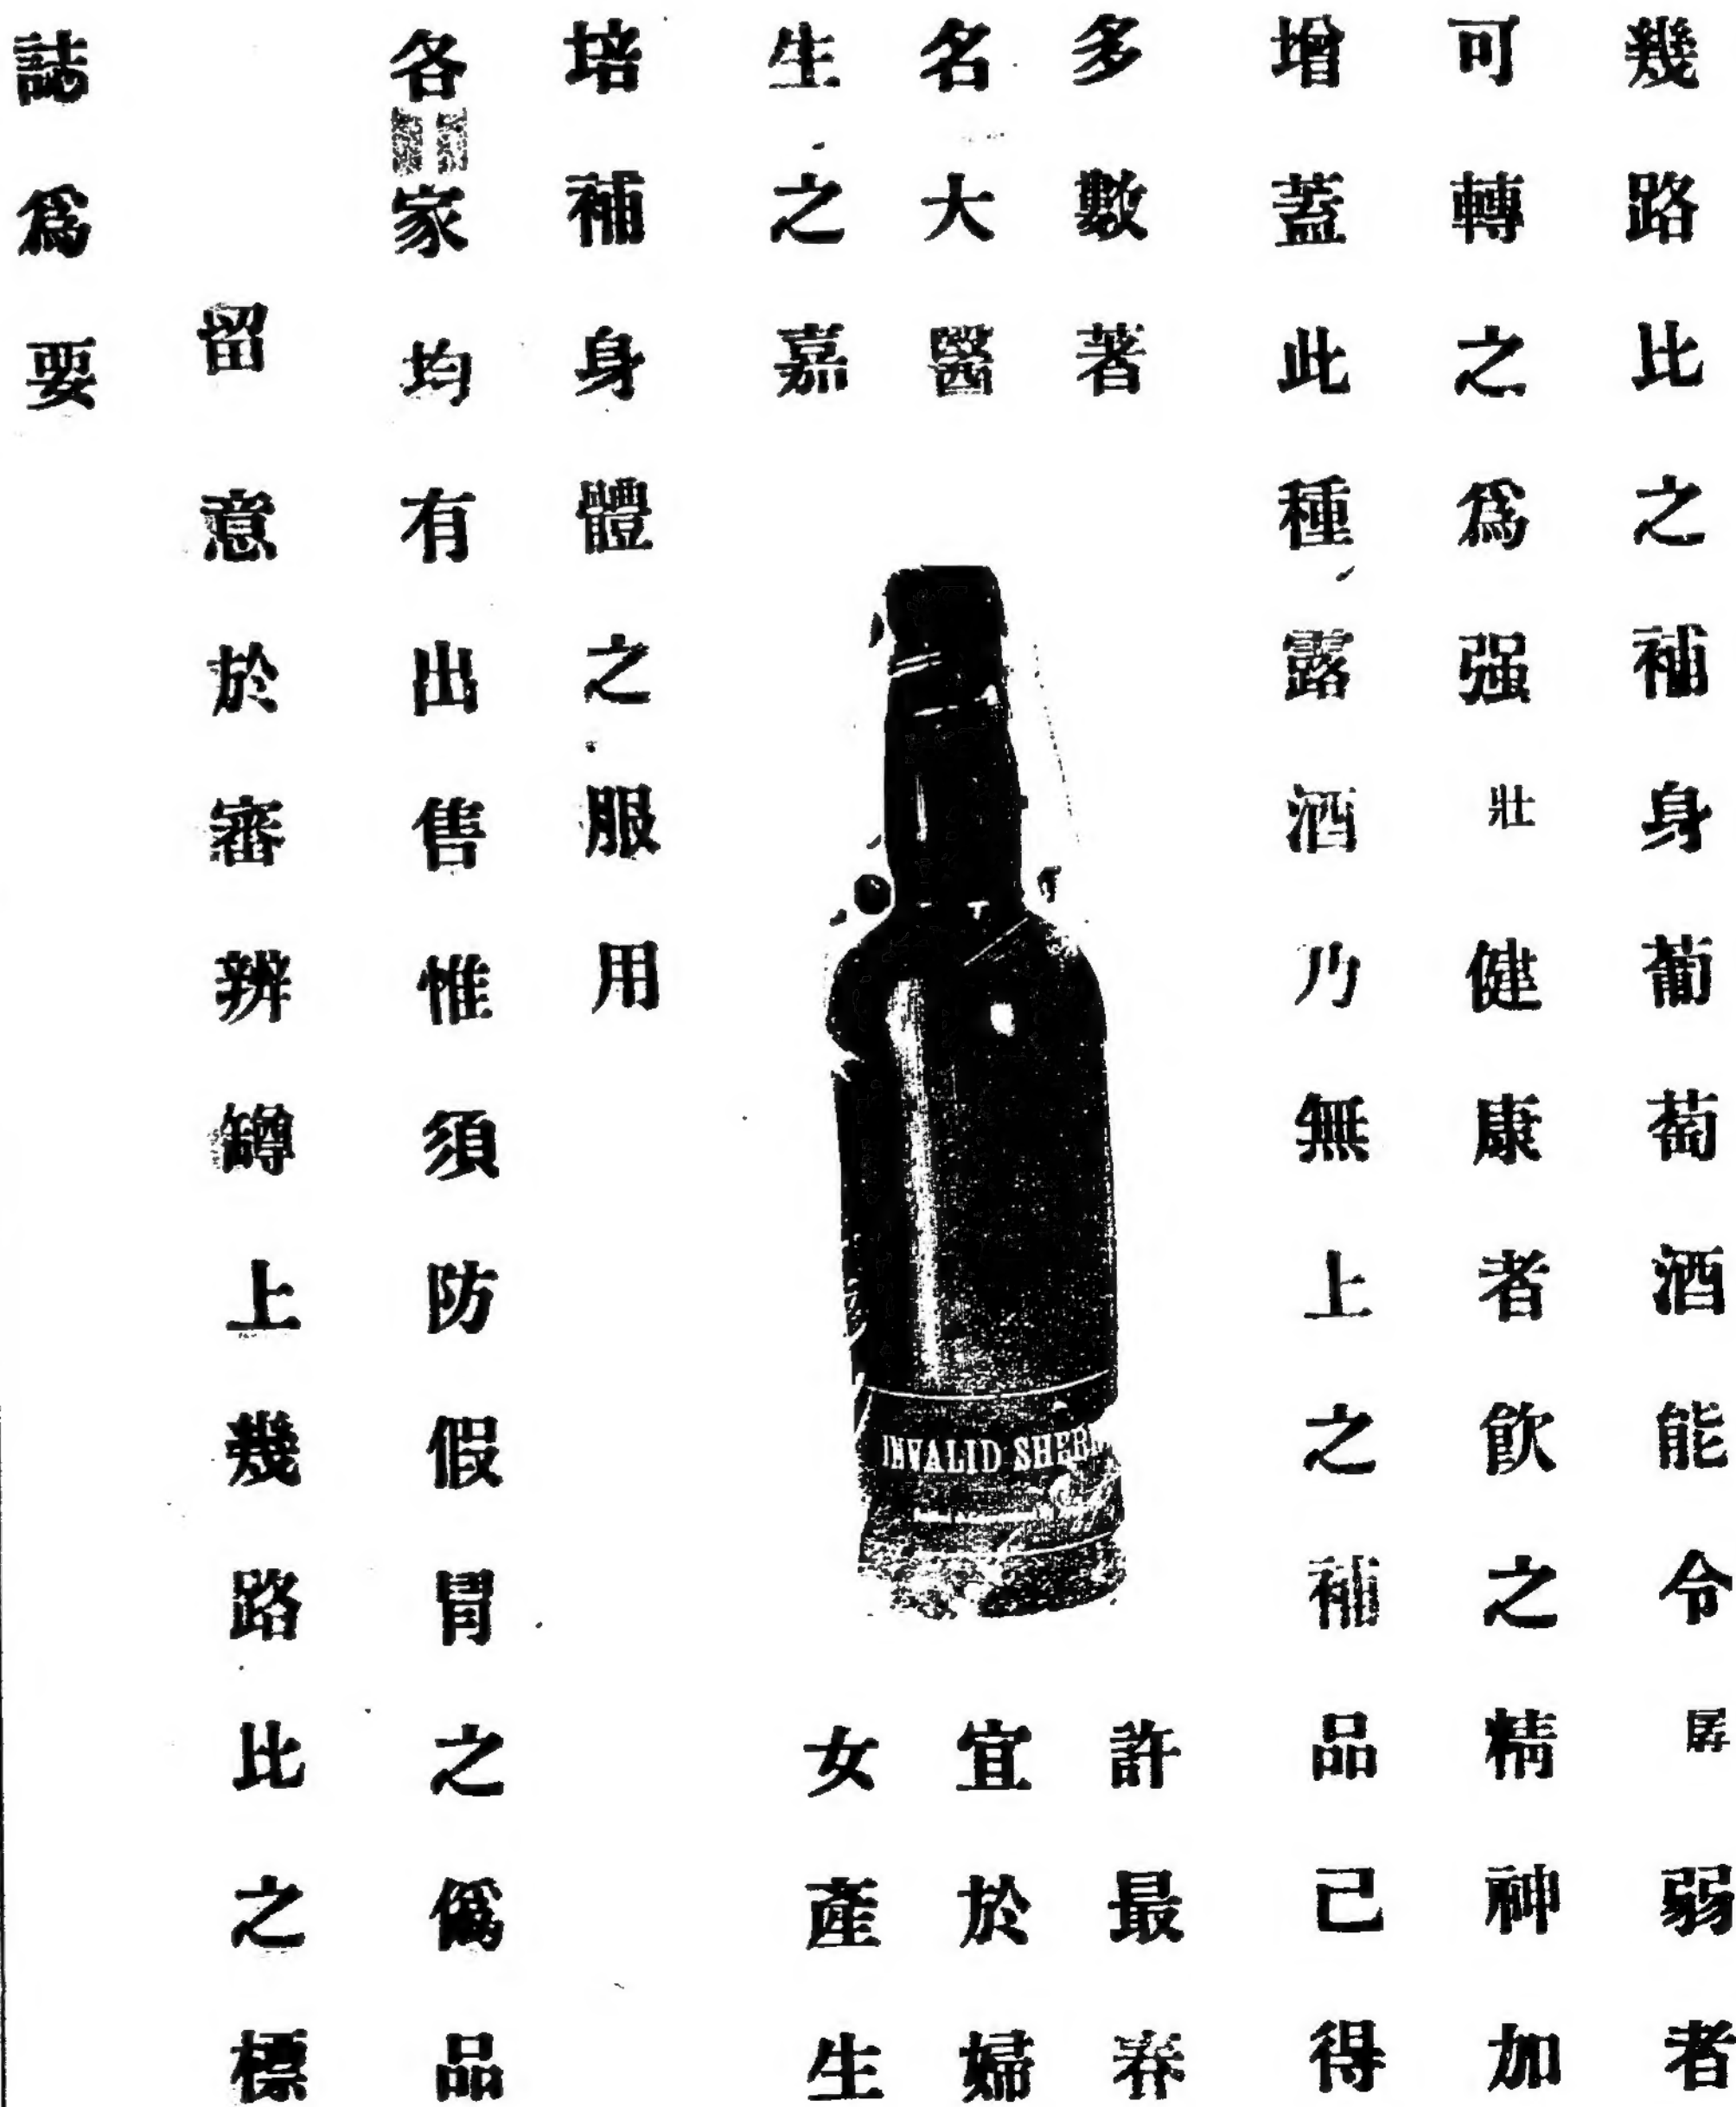 幾路比之補身葡萄酒能令孱弱者
可轉之爲强壯健康者飲之精神加
增蓋此種露酒乃無上之補品己得
多數著
名大醫
生之嘉
許最
宜於婦
女產生
培補身體之服用
各家均有出售惟須防假冐之僞品
留意於審辨罇上幾路比之標
誌爲要
INVALID